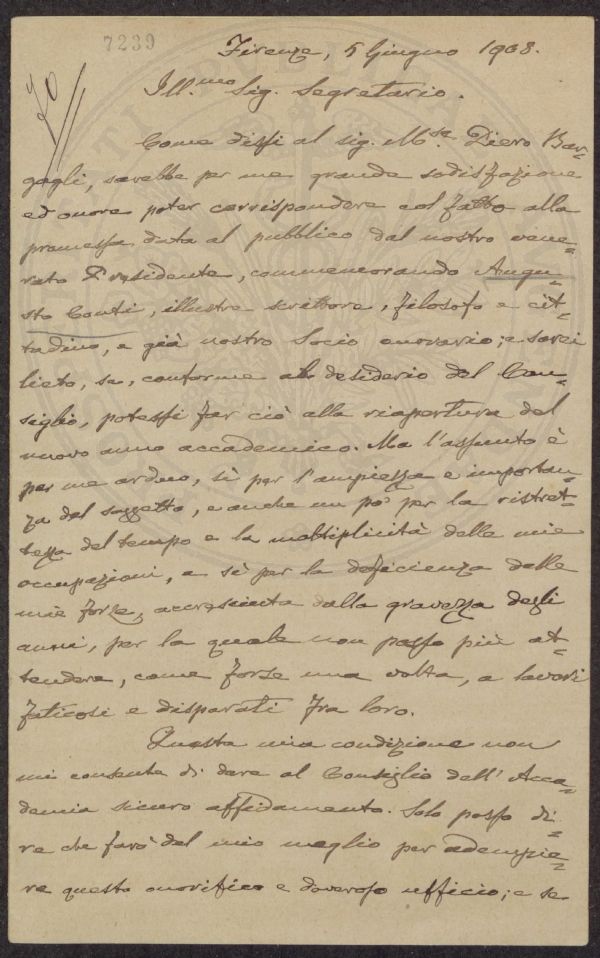 7239
20
Firenze, 5 Giugno 1908.
Ill.mo Sig. Segretario.
Come dissi al sig. M.se Piero Bar=
gagli, sarebbe per me grande sodisfazione
ed onore poter corrispondere col fatto alla
promessa data al pubblico dal nostro vene=
rato Presidente, commemorando Augu=
sto Conti, illustre scrittore, filosofo e cit=
tadino, e già nostro Socio onorario; e sarei
lieto, se, conforme al desiderio del Con=
siglio, potessi far ciò alla riapertura del
nuovo anno accademico. Ma l'assunto è
per me arduo, sì per l'ampiezza e importan=
za del soggetto, e anche un po' per la ristret=
tezza del tempo e la moltiplicità delle mie
occupazioni, e sì per la deficienza delle
mie forze, accresciuta dalla gravezza degli
anni, per la quale non posso più at=
tendere, come forse una volta, a lavori
faticosi e disparati fra loro.
Questa mia condizione non
mi consente di dare al Consiglio dell'Acca=
demia sicuro affidamento. Solo posso di=
re che farò del mio meglio per adempie=
re questo onorifico e doveroso ufficio; e se